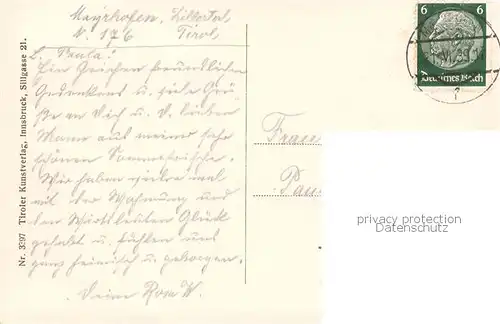 Mayrhofen, Zillertal
N. 176 Tirol
L. Paula!
Ein Zeichen freundlichen
Gedenkens u. viele Grü-
ße an Dich u. D. lieben
Mann aus meiner sehr
schönen Sommerfrische.
Wir haben wieder mal
mit der Wohnung und
den Wirtsleuten Glück
gehabt u. fühlen uns
ganz heimisch u. geborgen.
Deine Rosa W.
Nr. 3397 Tiroler Kunstverlag, Innsbruck, Sillgasse 21.
6 6
Deutsches Reich
Frau
privacy protection
Datenschutz